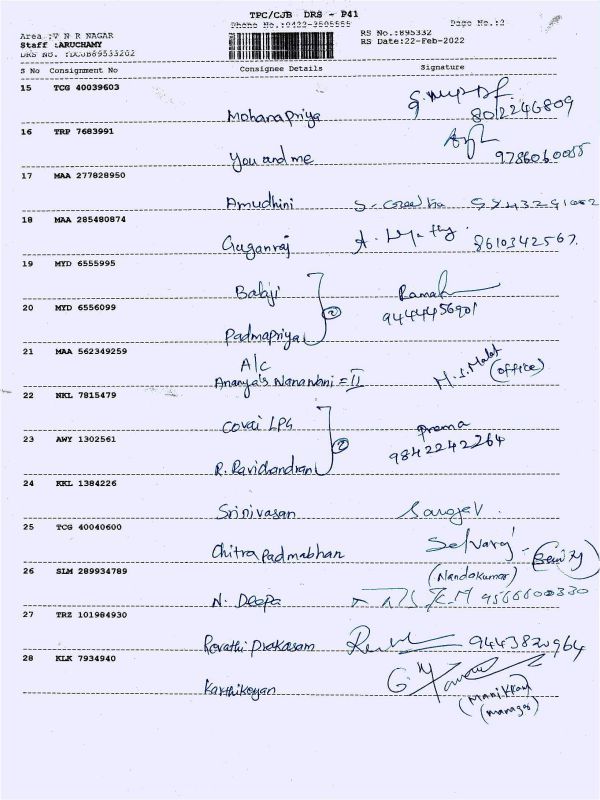 TPC/CJB DRS - P41
Phone No.:0422-3505555 Page No.:2
Area :V N R NAGAR RS No.:895332
Staff :ARUCHAMY RS Date:22-Feb-2022
DRS No. :DCJB89533202
S No Consignment No Consignee Details Signature
15 TCG 40039603
Mohanapriya 8012246809
16 TRP 7683991
You and me 9786060055
17 MAA 277828950
Amudhini
18 MAA 285480874
Guganraj 8610342567.
19 MYD 6555995
Babji Ramah
20 MYD 6556099 2 9444456901
Padmapriya
21 MAA 562349259
A/c
Ananya's Nananani = II (office)
22 NKL 7815479
Covai LPG Prema
23 AWY 1302561 2 9842242264
R. Ravichandran
24 KKL 1384226
Srinivasan Saroja V.
25 TCG 40040600
Chitra Padmabhan Selvaraj
26 SLM 289934789 (Nandakumar)
N. Deepa 9566600330
27 TRZ 101984930
Revathi Prakasam 9443820964
28 KLK 7934940
Karthikeyan (Manikkam
(manager)